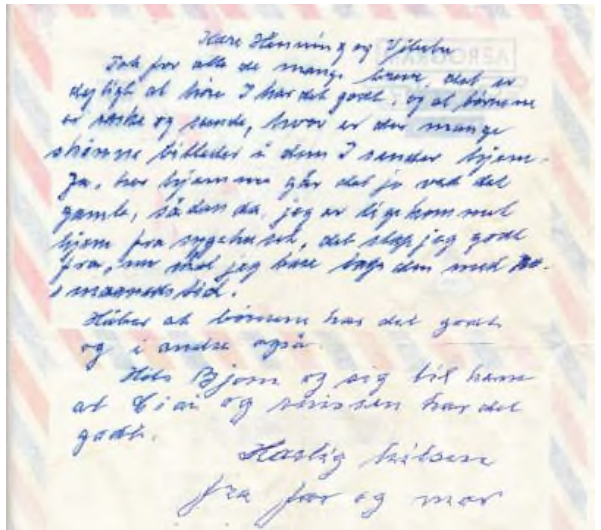 Kære Henning og Vibeke
Tak for alle de mange breve, det er
dejligt at høre I har det godt, og at børnene
er raske og sunde, hvor er der mange
skønne billeder å dem I sender hjem.
Ja, her hjemme går det jo ved det
gamle, sådan da, jeg er lige kommet
hjem fra sygehuset, det slap jeg godt
fra, nu skal jeg bare tage den med
maaneds tid.
Håber at børnene har det godt
og i andre også.
Hils Bjørn og sig til ham
at og nissen har det
godt.
Kærlig hilsen
fra far og mor
AEROGRAM